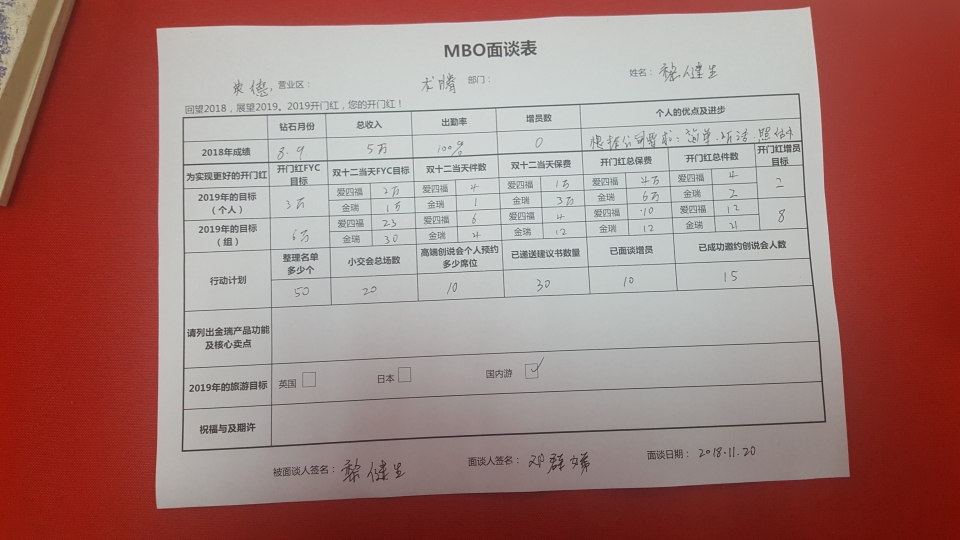 MBO面谈表
英德 营业区： 龙腾 部门： 姓名： 黎健生
回望2018，展望2019。2019开门红，您的开门红！
钻石月份 总收入 出勤率 增员数 个人的优点及进步
2018年成绩 8.9 5万 100% 0 根据公司要求：简单.听话.照做
为实现更好的开门红 开门红FYC目标 双十二当天FYC目标 双十二当天件数 双十二当天保费 开门红总保费 开门红总件数 开门红增员目标
2019年的目标（个人） 3万 爱四福 2万 爱四福 4 爱四福 1万 爱四福 4万 爱四福 4 2
金瑞 1万 金瑞 1 金瑞 3万 金瑞 6万 金瑞 2
2019年的目标（组） 6万 爱四福 23 爱四福 6 爱四福 4 爱四福 10 爱四福 12 8
金瑞 30 金瑞 4 金瑞 12 金瑞 12 金瑞
行动计划 整理名单多少个 小交会总场数 高端创说会个人预约多少席位 已递送建议书数量 已面谈增员 已成功邀约创说会人数
50 20 10 30 10 15
请列出金瑞产品功能及核心卖点
2019年的旅游目标 英国 日本 国内游 ✓
祝福与及期许
被面谈人签名： 黎健生 面谈人签名： 邓群娣 面谈日期： 2018.11.20